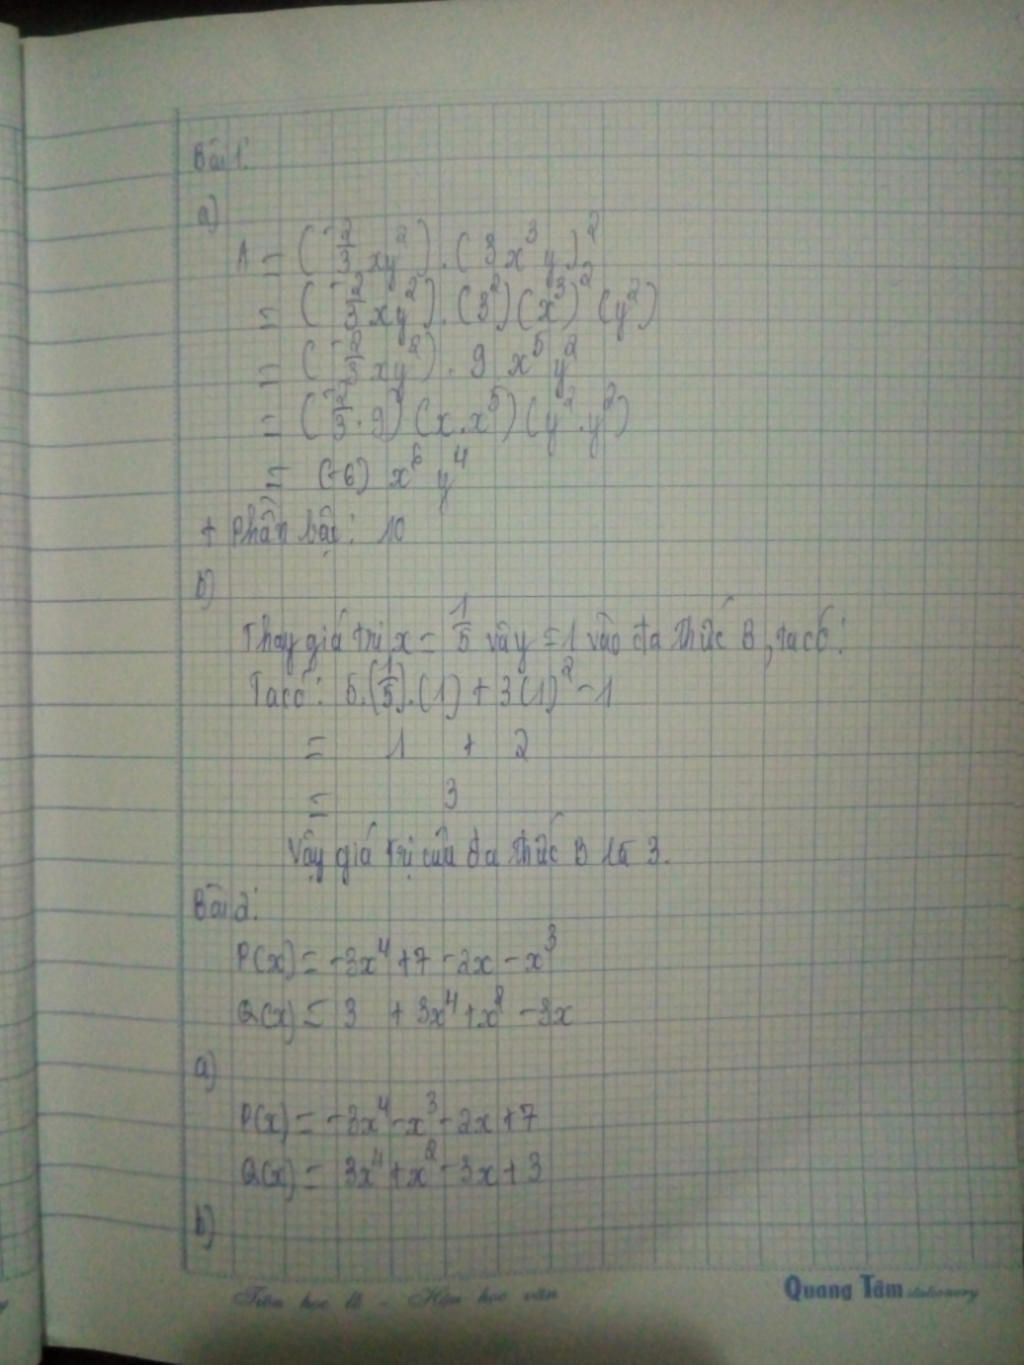 Bài 1:
a)
A = (-2/3 xy²) . (3x³y)²
= (-2/3 xy²) . (3²)(x³)² (y²)
= (-2/3 xy²) . 9 x⁵y²
= (-2/3 . 9) (x . x⁵) (y² . y²)
= (-6) x⁶ y⁴
+ Phần bậc: 10
b)
Thay giá trị x = 1/5 và y = 1 vào đa thức B, ta có:
Ta có: 5.(1/5).(1) + 3(1)² - 1
= 1 + 2
= 3
Vậy giá trị của đa thức B là 3.
Bài 2:
P(x) = -3x⁴ + 7 - 2x - x³
Q(x) = 3 + 3x⁴ + x² - 3x
a)
P(x) = -3x⁴ - x³ - 2x + 7
Q(x) = 3x⁴ + x² - 3x + 3
b)
Tiên học lễ - Hậu học văn
Quang Tâm stationery